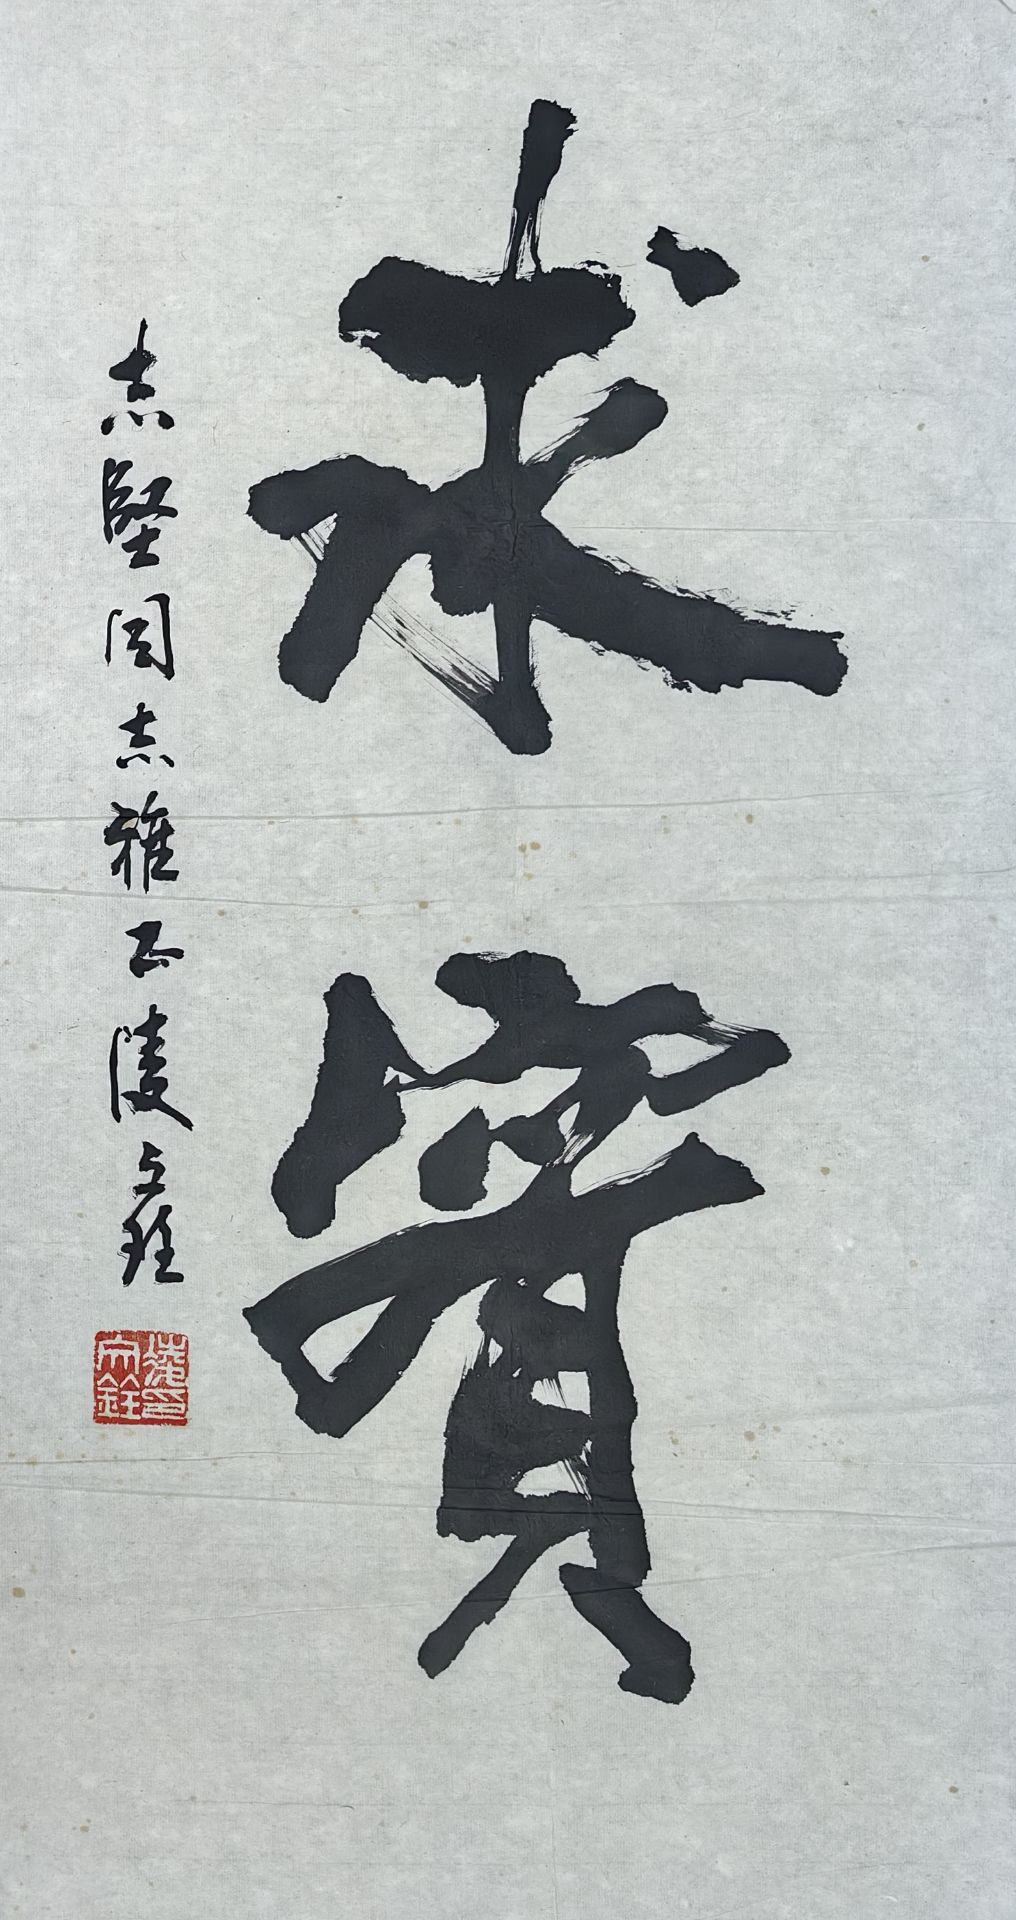 求實
志堅同志雅正 陵